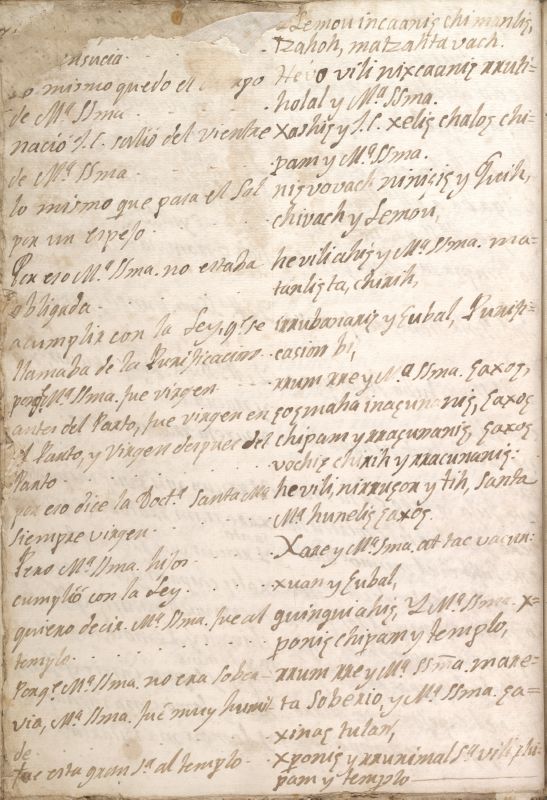 nsucia.
lo mismo quedo el
de Mª SSma.
nació J.C. salió del vientre
de Mª SSma.
lo mismo que pasa el Sol
por un espejo.
Por eso Mª SSma. no estaba
obligada.
a cumplir con la Ley, q.e se
llamaba de la Purificacion.
porq.e Mª SSma. fue virgen
antes del Parto, fue virgen en
el Parto, y Virgen despues del
Parto.
por eso dice la Doct.ª Santa Mª
siempre virgen.
Pero Mª SSma. hijos
cumplió con la Ley.
quiero decir. Mª SSma. fue al
templo.
Porq.e Mª SSma. no era sober-
via, Mª SSma. fué muy humil
de
fue esta gran S.ª al templo.
Lemou incaanis chi manlis,
tzahoh, matzahta vach.
Hevo vili nixcaanis rruti=
holal y Mª SSma.
xashis y J.C. xelis chalos chi=
pam y Mª SSma.
nis vovach ninisis y Quih,
chivach y Lemou,
he vili ahis y Mª SSma. ma=
tanlista, chirih,
irrubanaris y Subal, Purifi=
casion bi,
rrum rre y Mª SSma. saxos,
sosmaha inasunanis, saxos
chipam y rrasunanis, saxos
vochis chirih y rracunanis.
he vili, nirruson y tih, Santa
Mª hunelis saxos.
Xare y Mª SSma. at tac vacun=
xuan y Subal,
quinquiahis, Y Mª SSma. x=
ponis chipam y templo,
rrum rre y Mª SSma. mare=
ta Soberio, y Mª SSma. sa=
xinas tulan,
xponis y rrunimal Sª vili chi=
pam y templo